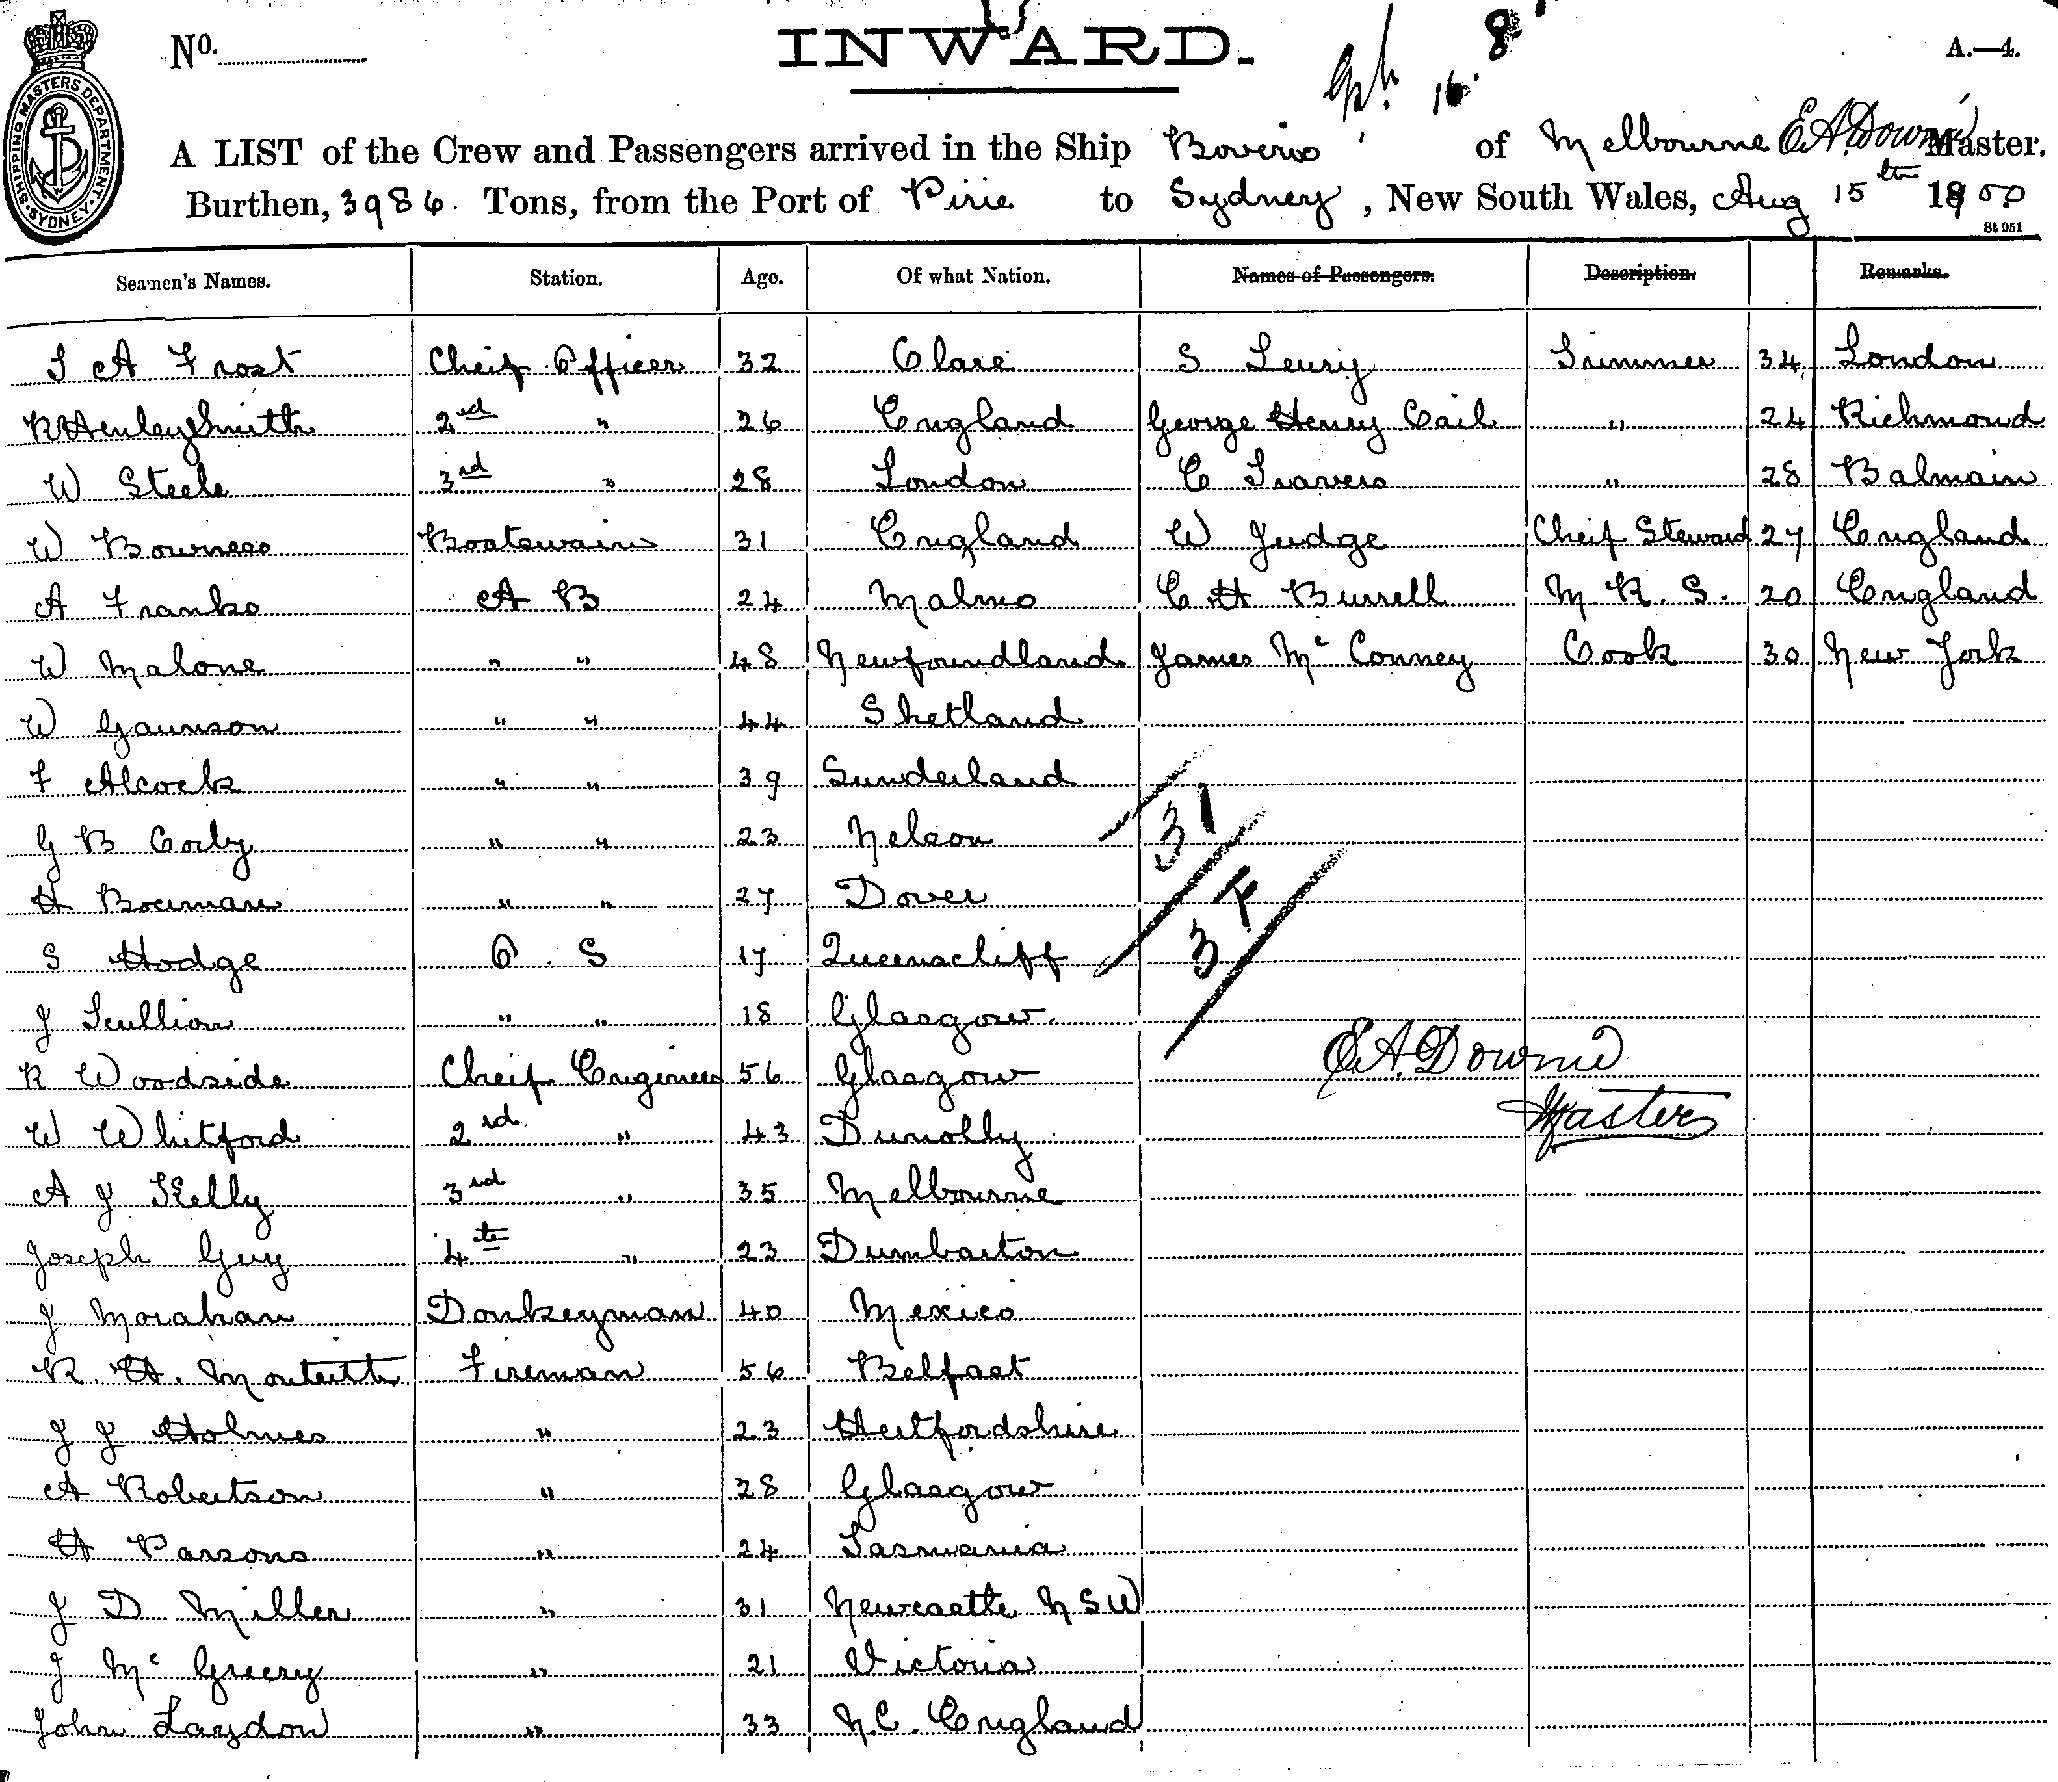 SHIPPING MASTERS DEPARTMENT. SYDNEY.
No. INWARD. 16. 8 A.—4.
A LIST of the Crew and Passengers arrived in the Ship Boveric of Melbourne E.A. Downie Master.
Burthen, 3986 Tons, from the Port of Pirie to Sydney, New South Wales, Aug 15th 1900
St 951
Seamen's Names. Station. Age. Of what Nation. Names of Passengers. Description. Remarks.
A Frost Cheif Officer 32 Clare S Leury Trimmer 34 London
R Henley Smith 2nd " 26 England George Henry Cail " 24 Richmond
W Steele 3rd " 28 London C Travers " 28 Balmain
W Bowness Boatswain 31 England W Judge Cheif Steward 27 England
A Franks A B 24 Malmo C H Burrell M R. S. 20 England
W Malone " " 48 Newfoundland James Mc Conney Cook 30 New York
W Gaunson " " 44 Shetland
F Alcock " " 39 Sunderland
G B Corby " " 23 Nelson 31
H Boorman " " 27 Dover
S Hodge O. S 17 Queenscliff
J Scullion " " 18 Glasgow.
R Woodside Cheif Engineer 56 Glasgow E.A. Downie
W Whitford 2rd " 43 Dunolly Master
A J Kelly 3rd " 35 Melbourne
Joseph Guy 4th " 23 Dumbarton
J Morahan Donkeyman 40 Mexico
R. H. Monteith Fireman 56 Belfast
J J Holmes " 23 Hertfordshire
A Robertson " 28 Glasgow
H Parsons " 24 Tasmania
J D Miller " 31 Newcastle N S W
J Mc Greery " 21 Victoria
John Laydon " 33 N.C. England